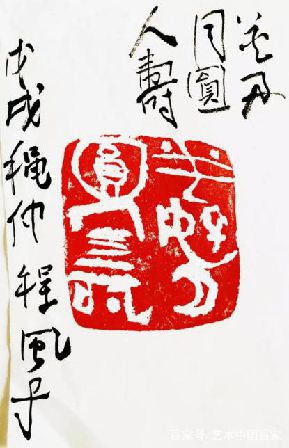 花好
月圓
人壽
戊戌穐仲程風子
百家号/艺术中国画家